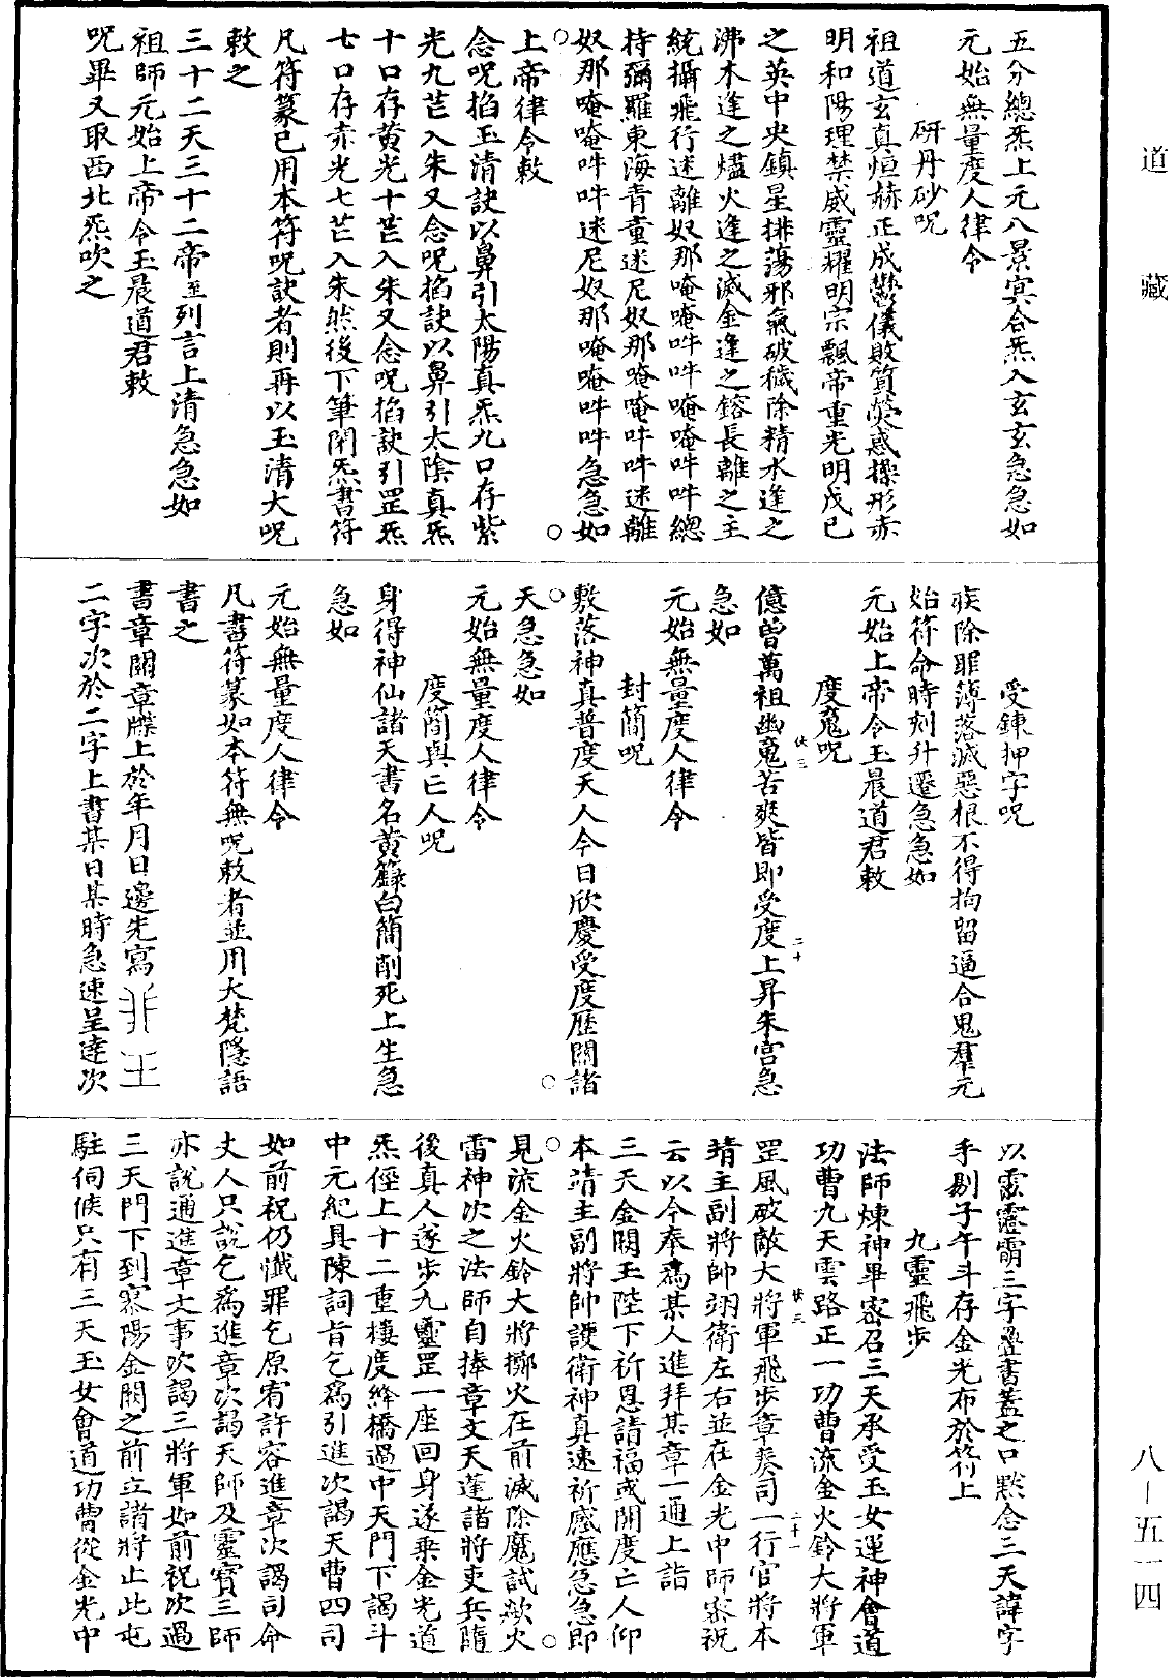 道藏
五分總炁上元八景冥合炁入玄玄急急如
元始無量度人律令
研丹砂呪
祖道玄真烜赫正成鬱儀敗質熒惑操形赤
明和陽理禁威靈耀明宗飄帝重光明戊已
之英中央鎮星排蕩邪氣破穢除精水逢之
沸木逢之燼火逢之滅金逢之鎔長離之主
統攝飛行迷離奴那唵唵吽吽唵唵吽吽總
持彌羅東海青童迷尼奴那唵唵吽吽迷離
奴那唵唵吽吽迷尼奴那唵唵吽吽急急如
上帝律令敕
念呪掐玉清訣以鼻引太陽真炁九口存紫
光九芒入朱又念呪掐訣以鼻引太陰真炁
十口存黄光十芒入朱又念呪掐訣引罡炁
七口存赤光七芒入朱然後下筆閉炁書符
凡符篆已用本符呪訣者則再以玉清大呪
敕之
三十二天三十二帝至列言上清急急如
祖師元始上帝令玉晨道君敕
呪畢又取西北炁吹之
受鍊押字呪
疾除罪薄落滅惡根不得拘留逼合鬼羣元
始符命時刻升遷急急如
元始上帝令玉晨道君敕
度䰟呪
億曾萬祖幽䰟苦爽皆即受度上昇朱宫急
急如
元始無量度人律令
封簡呪
敷落神真普度天人今日欣慶受度歷關諸
天急急如
元始無量度人律令
度簡與亡人呪
身得神仙諸天書名黄籙白簡削死上生急
急如
元始無量度人律令
凡書符篆如本符無呪敕者並用大梵隱語
書之
書章關章牒上於年月日邊先寫
二字次於二字上書某日某時急速呈達次
以䨺䨴霄三字疊書蓋之口黙念三天諱字
手剔子午斗存金光布於符上
九靈飛步
法師煉神畢密召三天承受玉女運神會道
功曹九天雲路正一功曹流金火鈴大將軍
罡風破敵大將軍飛步章奏司一行官將本
靖主副將帥翊衛左右並在金光中師密祝
云以今奉爲某人進拜某章一通上詣
三天金闕玉陛下祈恩請福或開度亡人仰
本靖主副將帥䕶衛神真速祈感應急急即
見流金火鈴大將擲火在前滅除魔試歘火
雷神次之法師自捧章文天蓬諸將吏兵隨
後真人遂步九靈罡一座回身遂乗金光道
炁徑上十二重樓度絳橋過中天門下謁斗
中元紀具陳詞旨乞爲引進次謁天曹四司
如前祝仍懺罪乞原宥許容進章次謁司命
丈人只説乞爲進章次謁天師及靈寳三師
亦説通進章文事次謁三將軍如前祝次過
三天門下到寥陽金闕之前立諸將止此屯
駐伺候只有三天玉女會道功曹從金光中
八—五一四